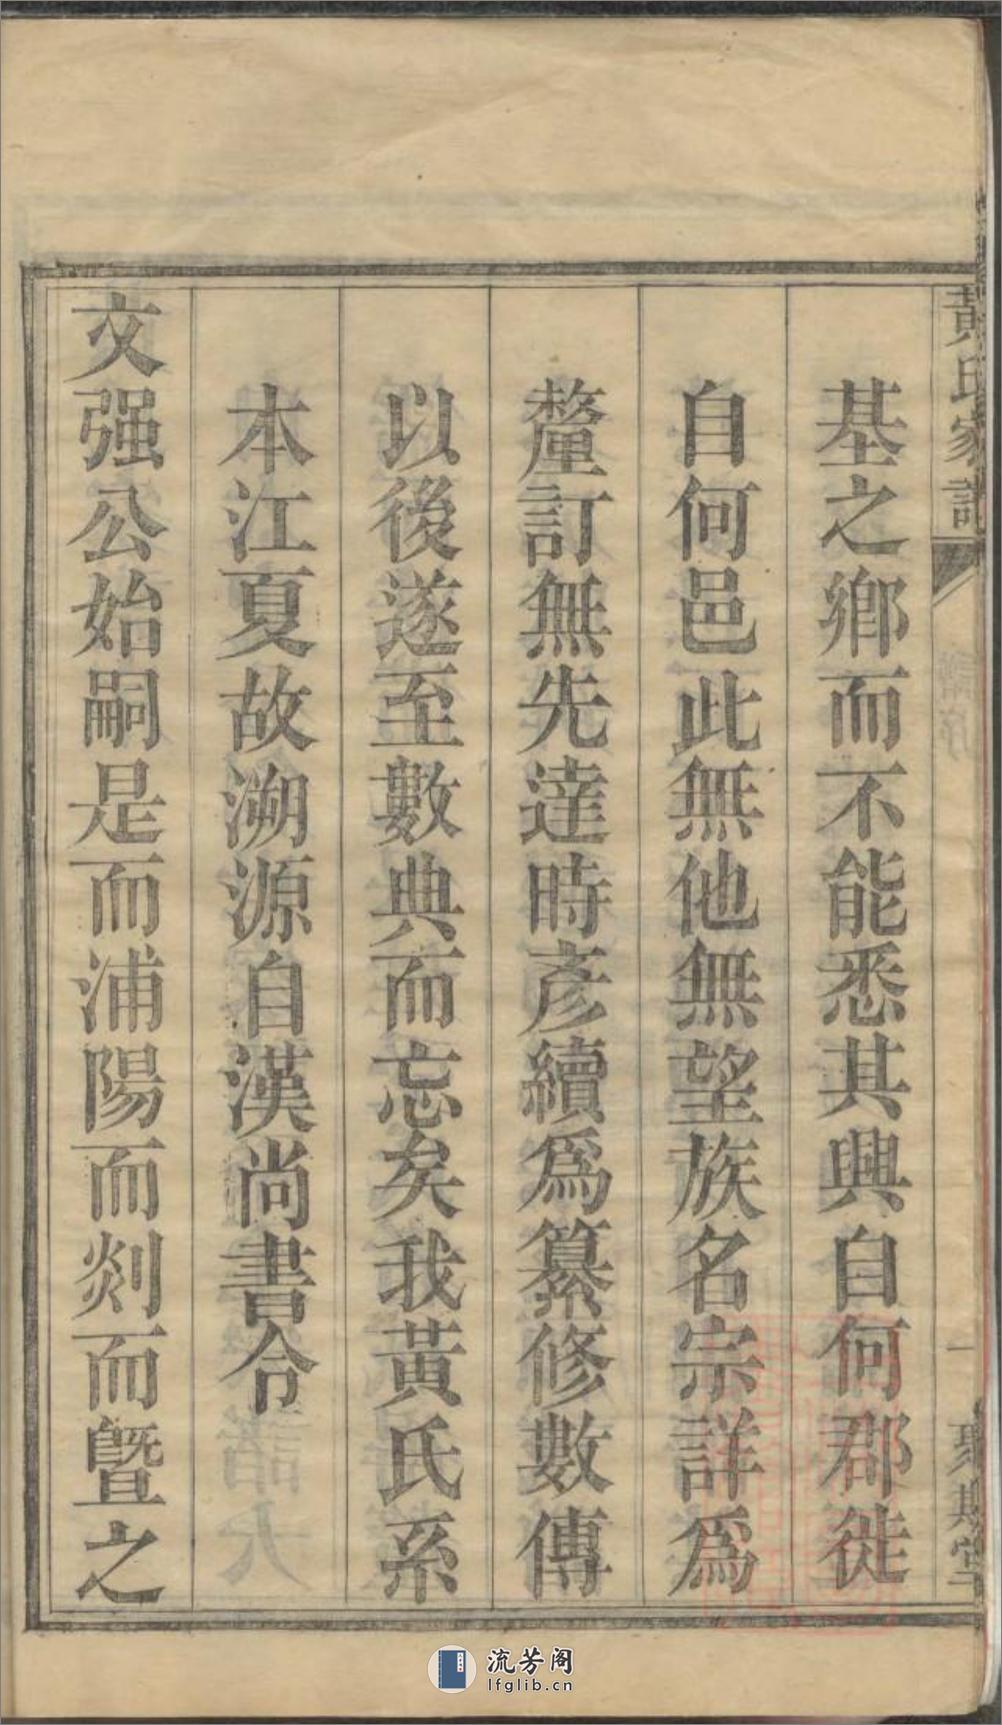 黃氏家譜
譜序
一
聚斯堂
基之鄉而不能悉其興自何郡徙
自何邑此無他無望族名宗詳為
釐訂無先達時彥續為纂修數傳
以後遂至數典而忘矣我黃氏系
本江夏故溯源自漢尚書令
文强公始嗣是而浦陽而剡而暨之
流芳阁
lfglib.cn